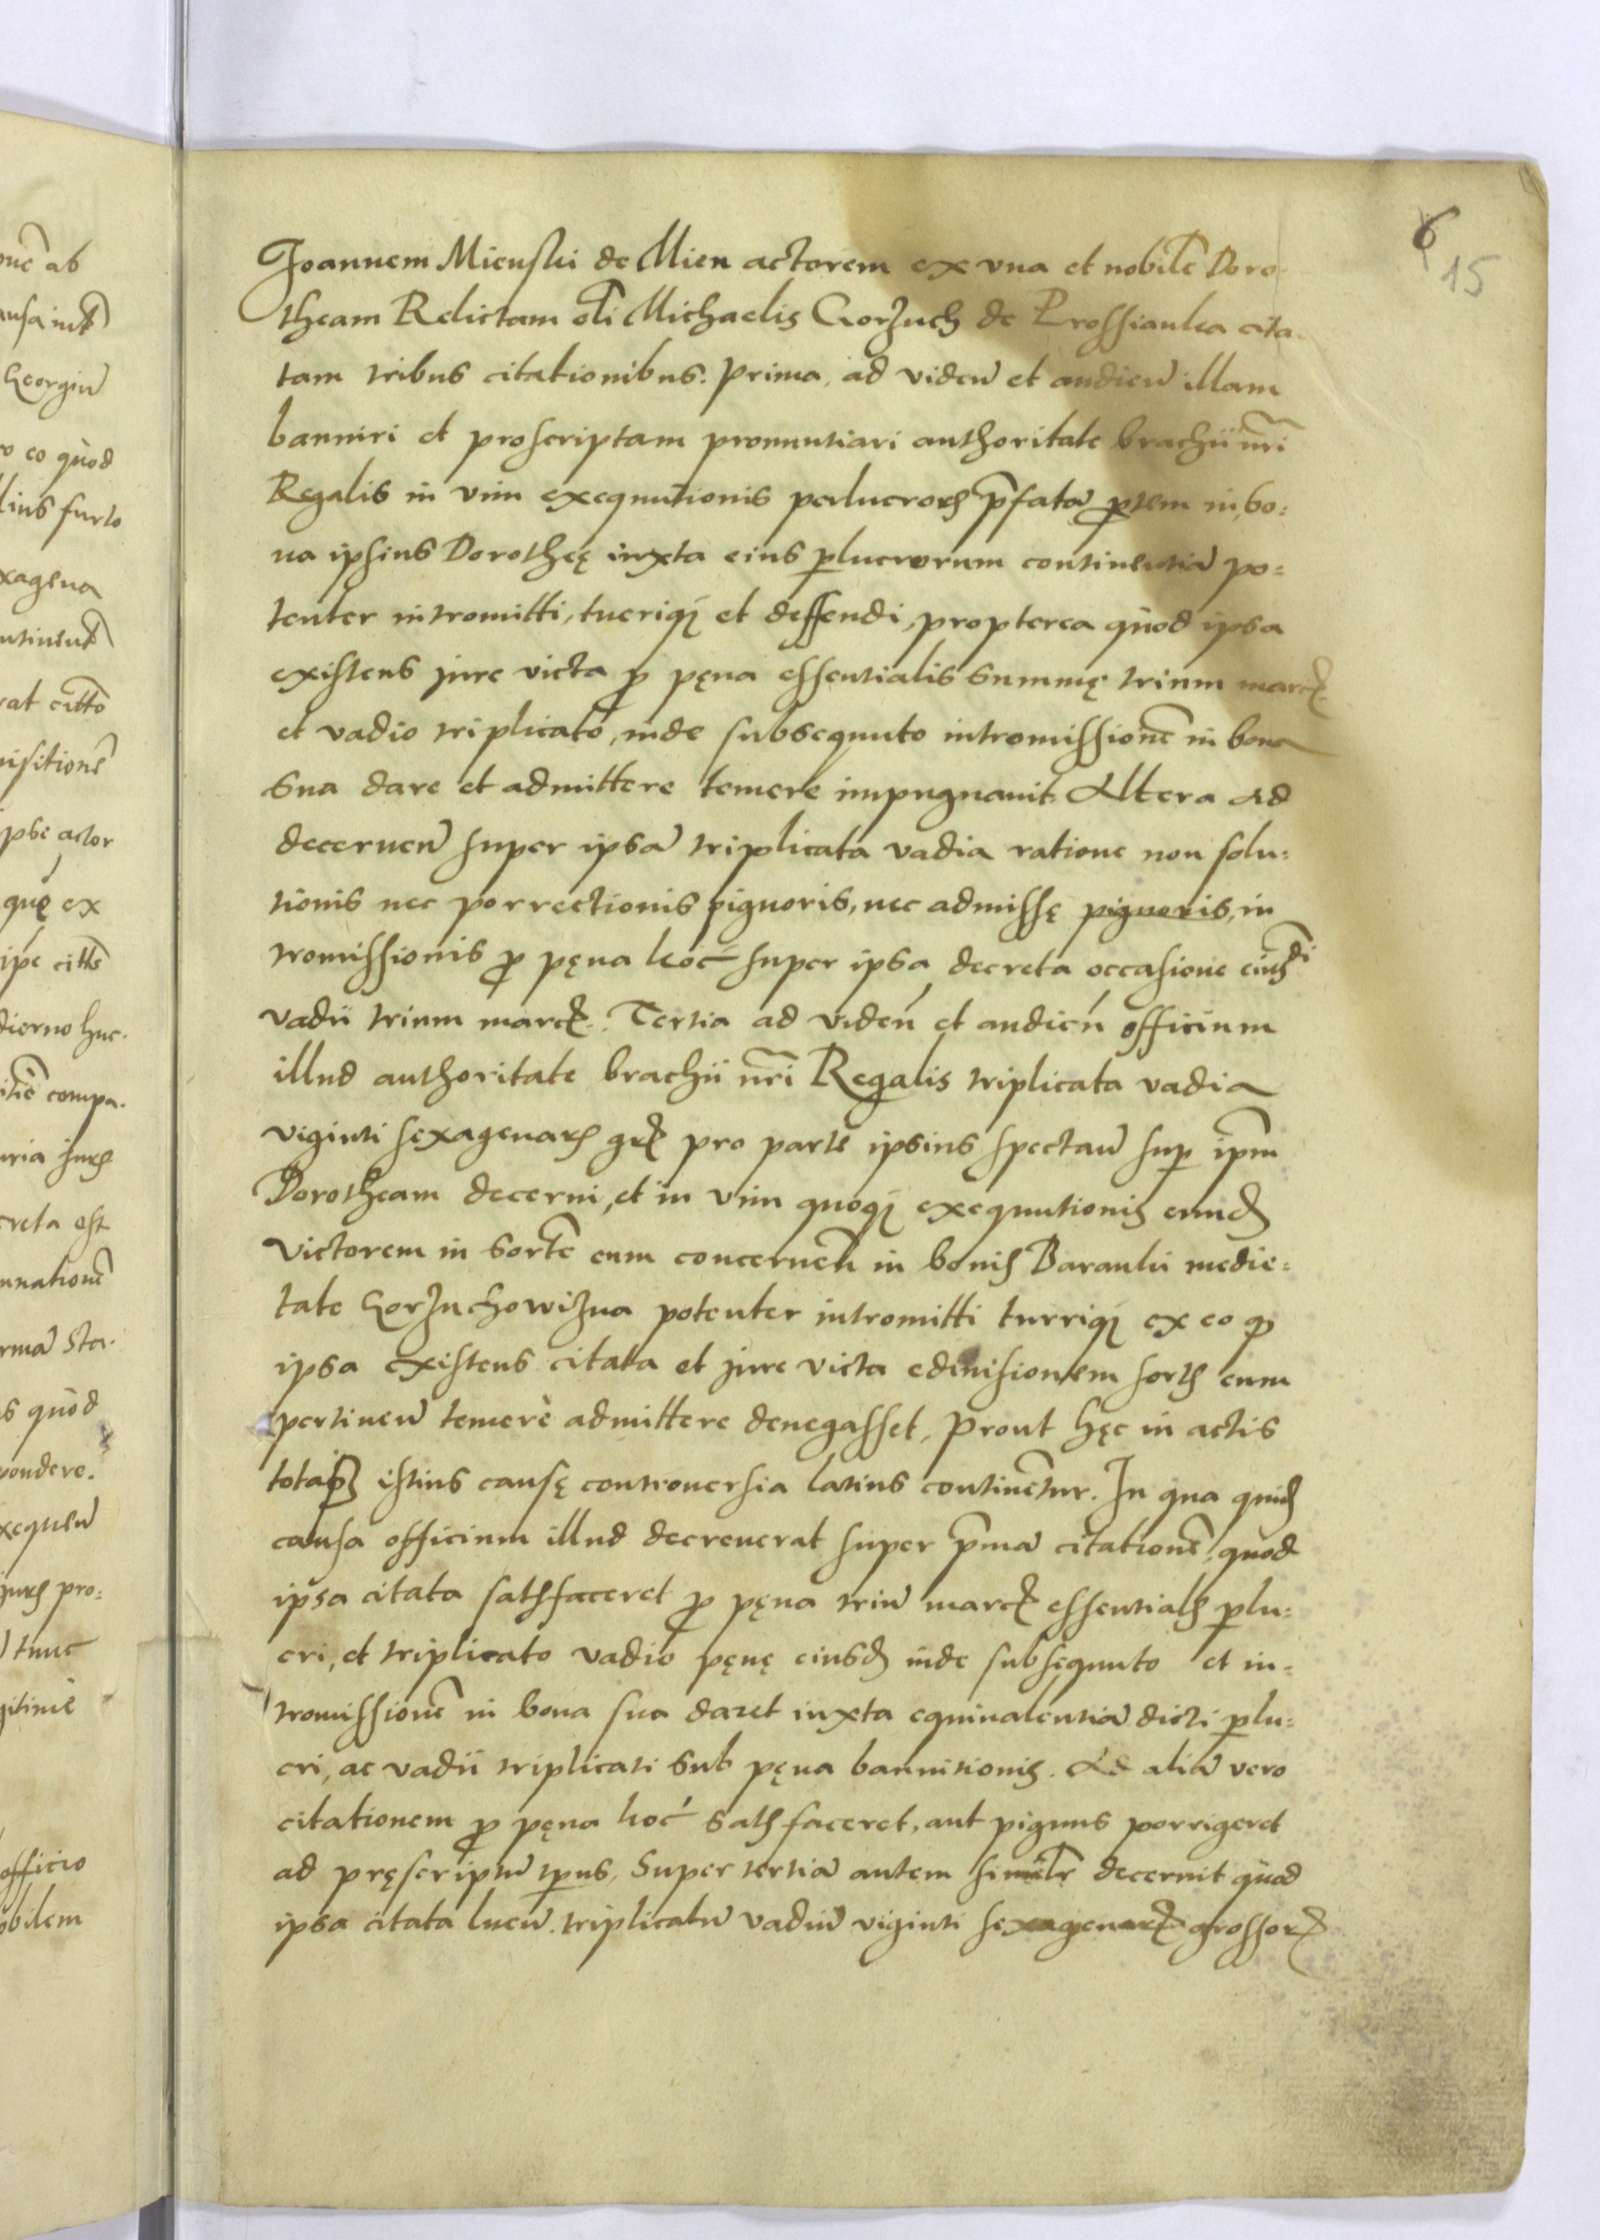 6
15
Joannem Mienski de Mien actorem ex vna et nobilē Doro-
theam Relictam oli Michaelis Gorzuch de Prossianka cita-
tam tribus citationibus. Prima, ad videñ et audieñ illam
banniri et proscriptam pronuntiari authoritate brachii nr̄i
Regalis in vim exequutionis perlucrorū p̄fatā ꝑtem in bo:
na ipsius Dorotheę iuxta eius ꝑlucrorum continentiā po:
tenter intromitti, tueriqꝫ et deffendi, propterea quòd ipsa
existens jure victa ꝓ pęna essentialis summę trium marcꝝ
et vadio triplicato, inde subsequuto intromissionē in bona
sua dare et admittere temere impugnauit. Altera ad
decerneñ super ipsā triplicata vadia ratione non solu:
tionis nec porrectionis pignoris, nec admissę pignoris, in
tromissionis ꝓ pęna
super ipsa decreta occasione eiusdi
vadii trium marcꝝ. Tertia ad videń et audień officium
illud authoritate brachii nr̄i Regalis triplicata vadia
viginti sexagenarꝝ grꝝ pro parte ipsius spectañ suꝑ ipm̄
Dorotheam decerni, et in vim quoqꝫ exequutionis eundꝫ
victorem in sortē eum concerneñ in bonis Baranki medie:
tate Gorzuchowizna potenter intromitti tuerriqꝫ ex eo ꝙ
ipsa existens citata et jure victa ediuisionem sortis eum
pertineñ temerè admittere denegasset, Prout hęc in actis
istius causę controuersia latius continētur. In qua quidꝫ
causa officium illud decreuerat super p̄mā citationē, quod
ipsa citata satisfaceret ꝓ pęna triū marcꝝ essentialis ꝑlu:
cri, et triplicato vadio pęnę eiusdꝫ inde subsequuto et in:
tromissionē in bona sua daret iuxta equiualentiā dicti ꝑlu:
cri, ac vadii triplicati sub pęna bannitionis. Ad aliā vero
citationem ꝓ pęna
satisfaceret, aut pignus porrigeret
ad pręscriptū tꝑus, Super tertiā autem similr̄ decernit quod
ipsa citata lueñ. triplicatū vadiū viginti sexagenarꝝ grossorꝝ